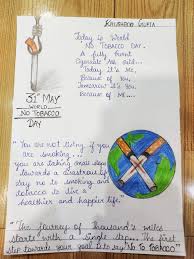 KHUSHBOO GUPTA
Today is World
NO TOBACCO DAY.
A fully front
Cigarate Me said...
Today it's Me,
Because of You,
Tomorrow it's You,
Because of Me....
31st MAY
WORLD
NO TOBACCO
DAY
"You are not dying if you
are smoking...
you are taking small steps
towards a disastrous life
say no to smoking and
tobacco to live a
healthier and happier life."
"The journey of thousand's miles
starts with a single step... The first
step toward your goal is to say No to TOBACCO"